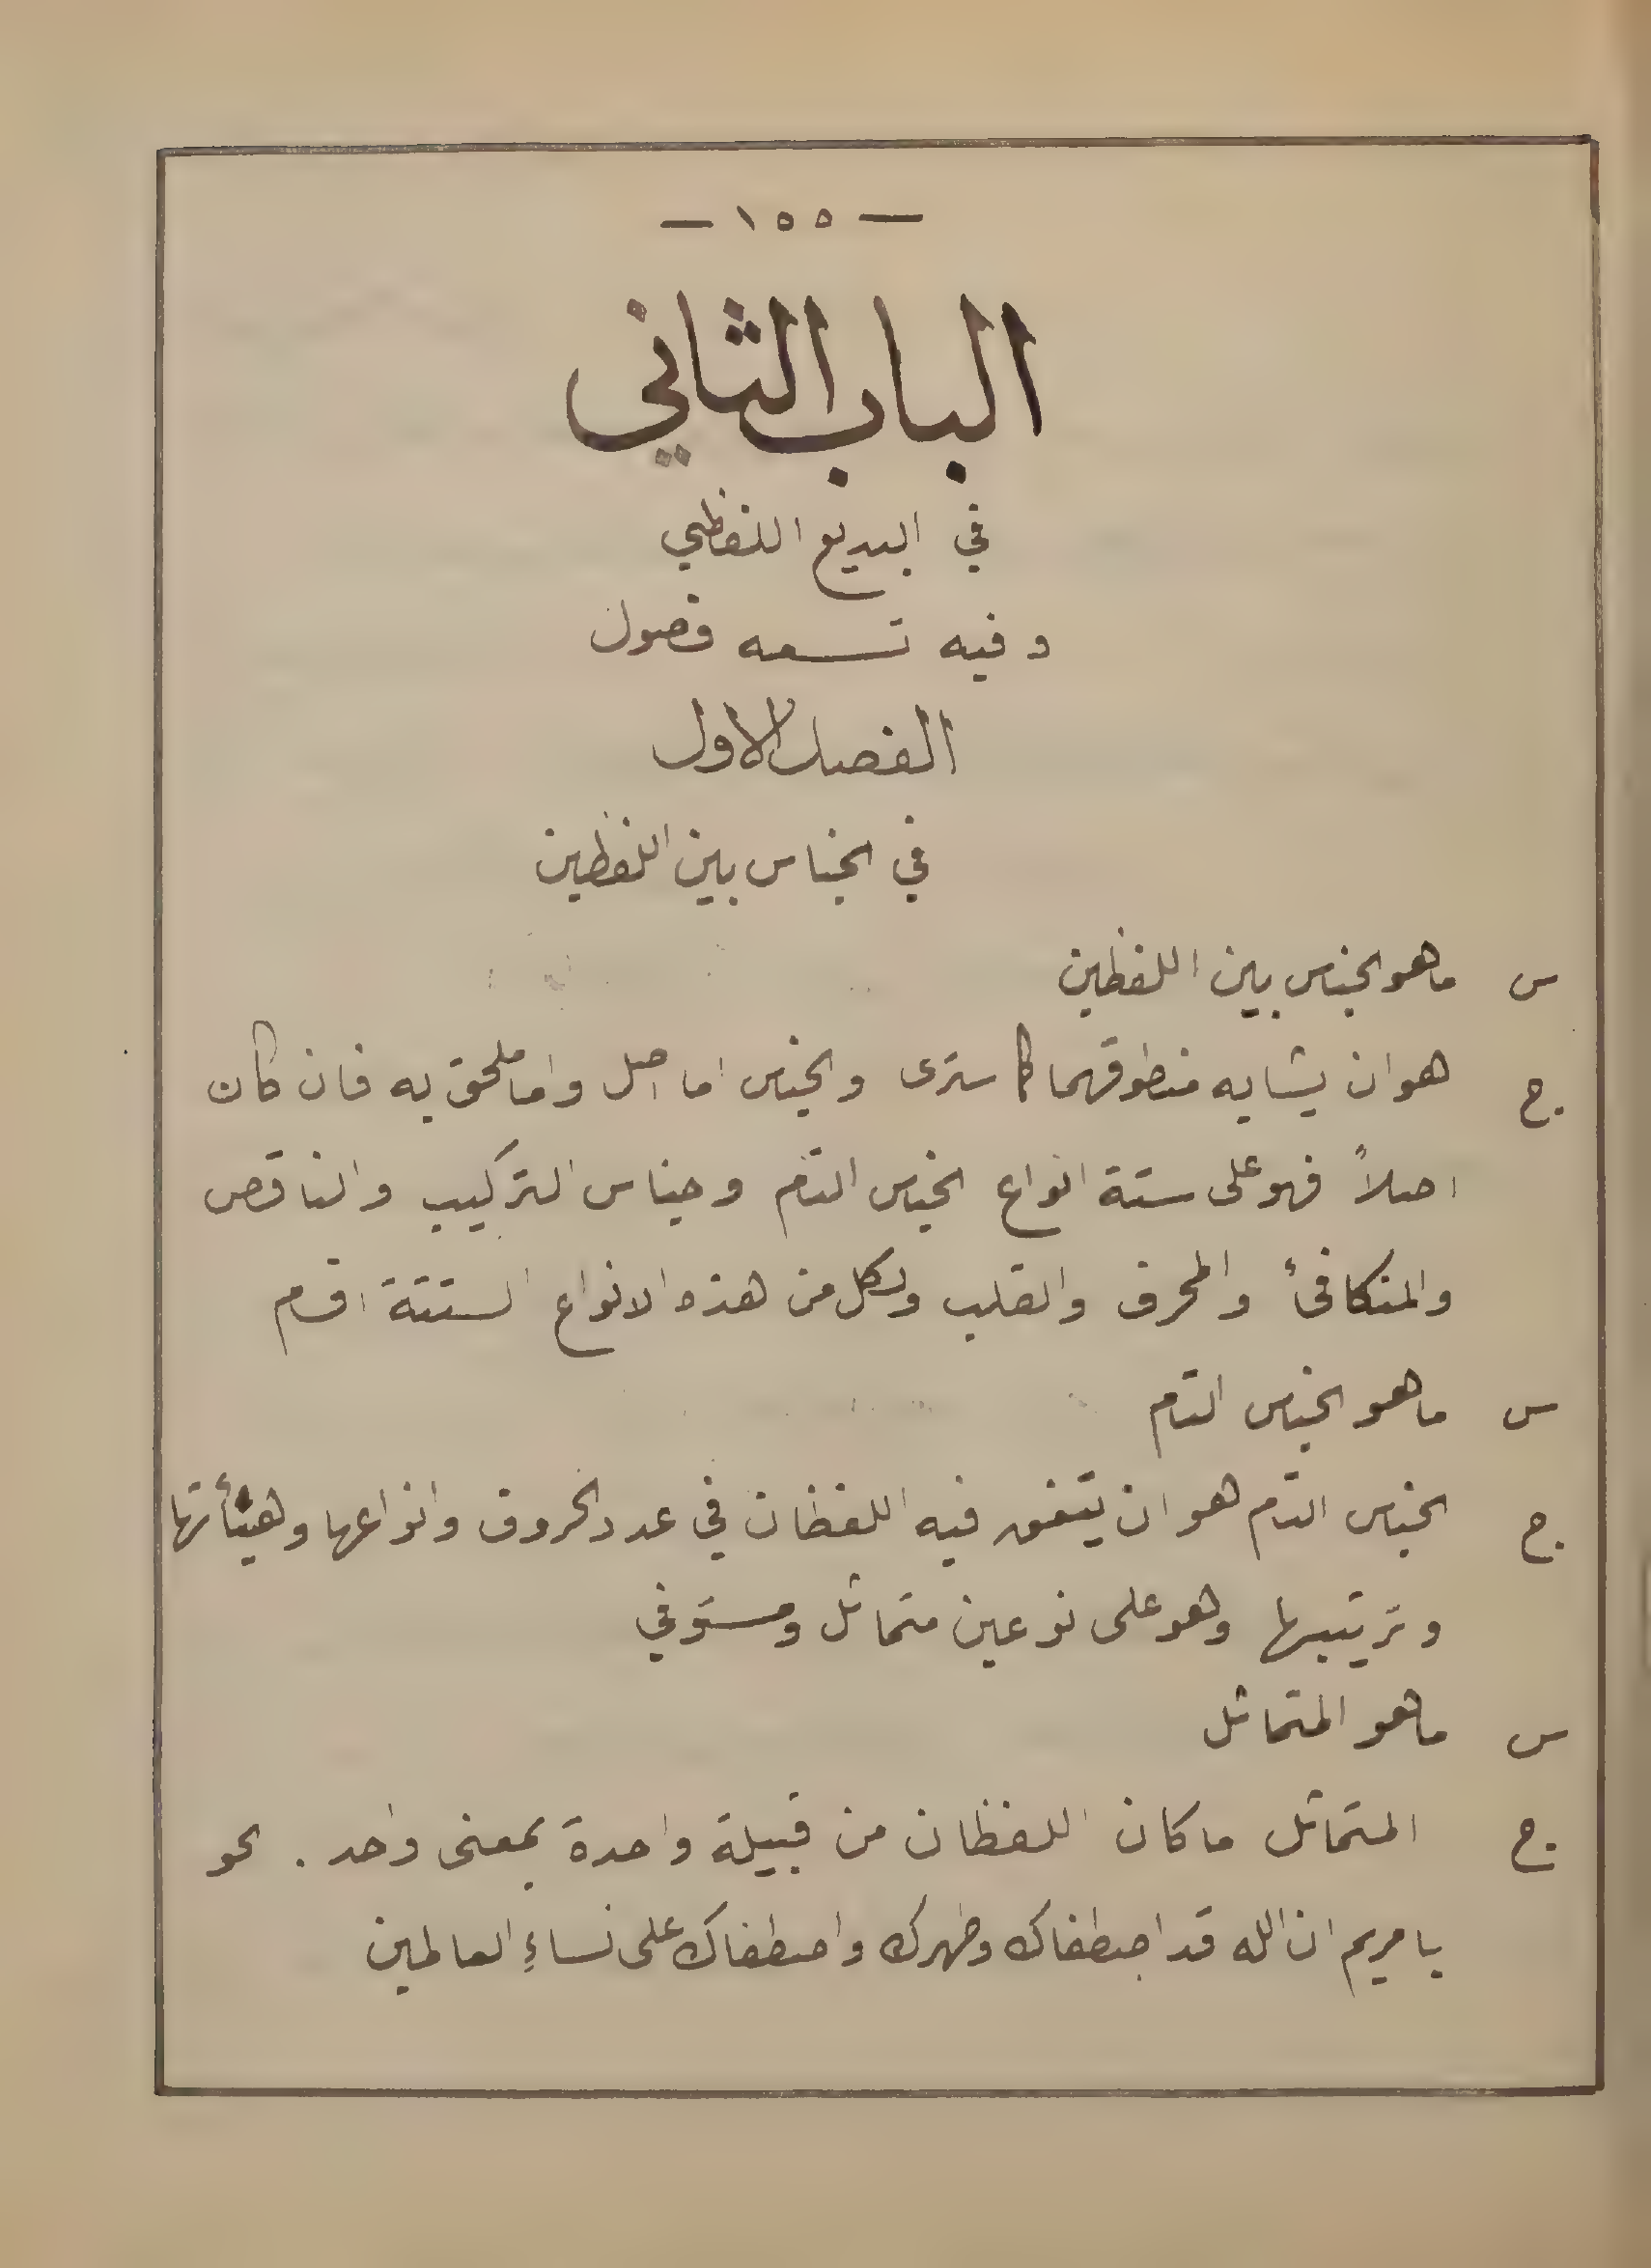 — ١٥٥ —
الباب الثاني
في البديع اللفظي
وفيه تسعه فصول
الفصل الاول
في الجناس بين اللفظين
س ما هو الجناس بين اللفظين
ج هو ان يشابه منطوقهما كما سترى والجناس اما اصل واما ملحق به فان كان
اصلاً فهو على ستة انواع الجناس التام وجناس التركيب والناقص
والمتكافئ والمحرف والقلب ولكل من هذه الانواع الستة اقسام
س ما هو الجناس التام
ج الجناس التام هو ان يتفق فيه اللفظان في عدد الحروف وانواعها وهيئأتها
وترتيبها وهو على نوعين متماثل ومستوفي
س ما هو المتماثل
ج المتماثل ما كان اللفظان من قبيلة واحدة بمعنى واحد . نحو
يا مريم ان الله قد اصطفاك وطهرك واصطفاك على نساءِ العالمين